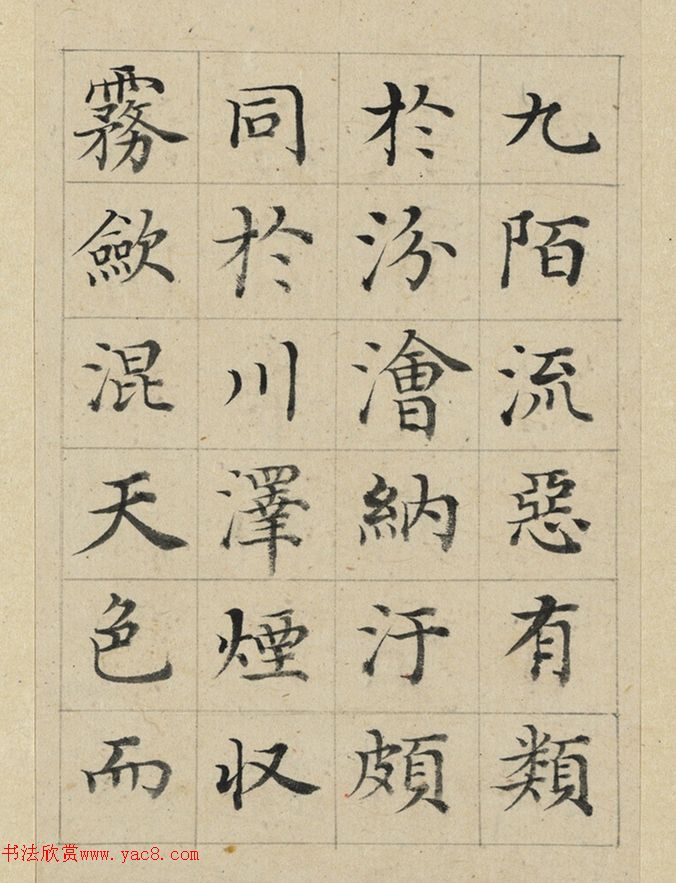 九陌流惡有類
於汾澮納汙頗
同於川澤煙収
霧歛混天色而
书法欣赏www.yac8.com